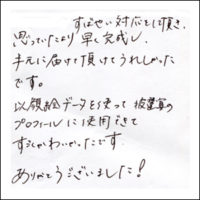 すばやい対応をして頂き、
思っていたより早く完成し、
手元に届けて頂けてうれしかった
です。
以顔絵データを使って披露宴の
プロフィールに使用できて
すごくかわいかったです。
ありがとうございました!